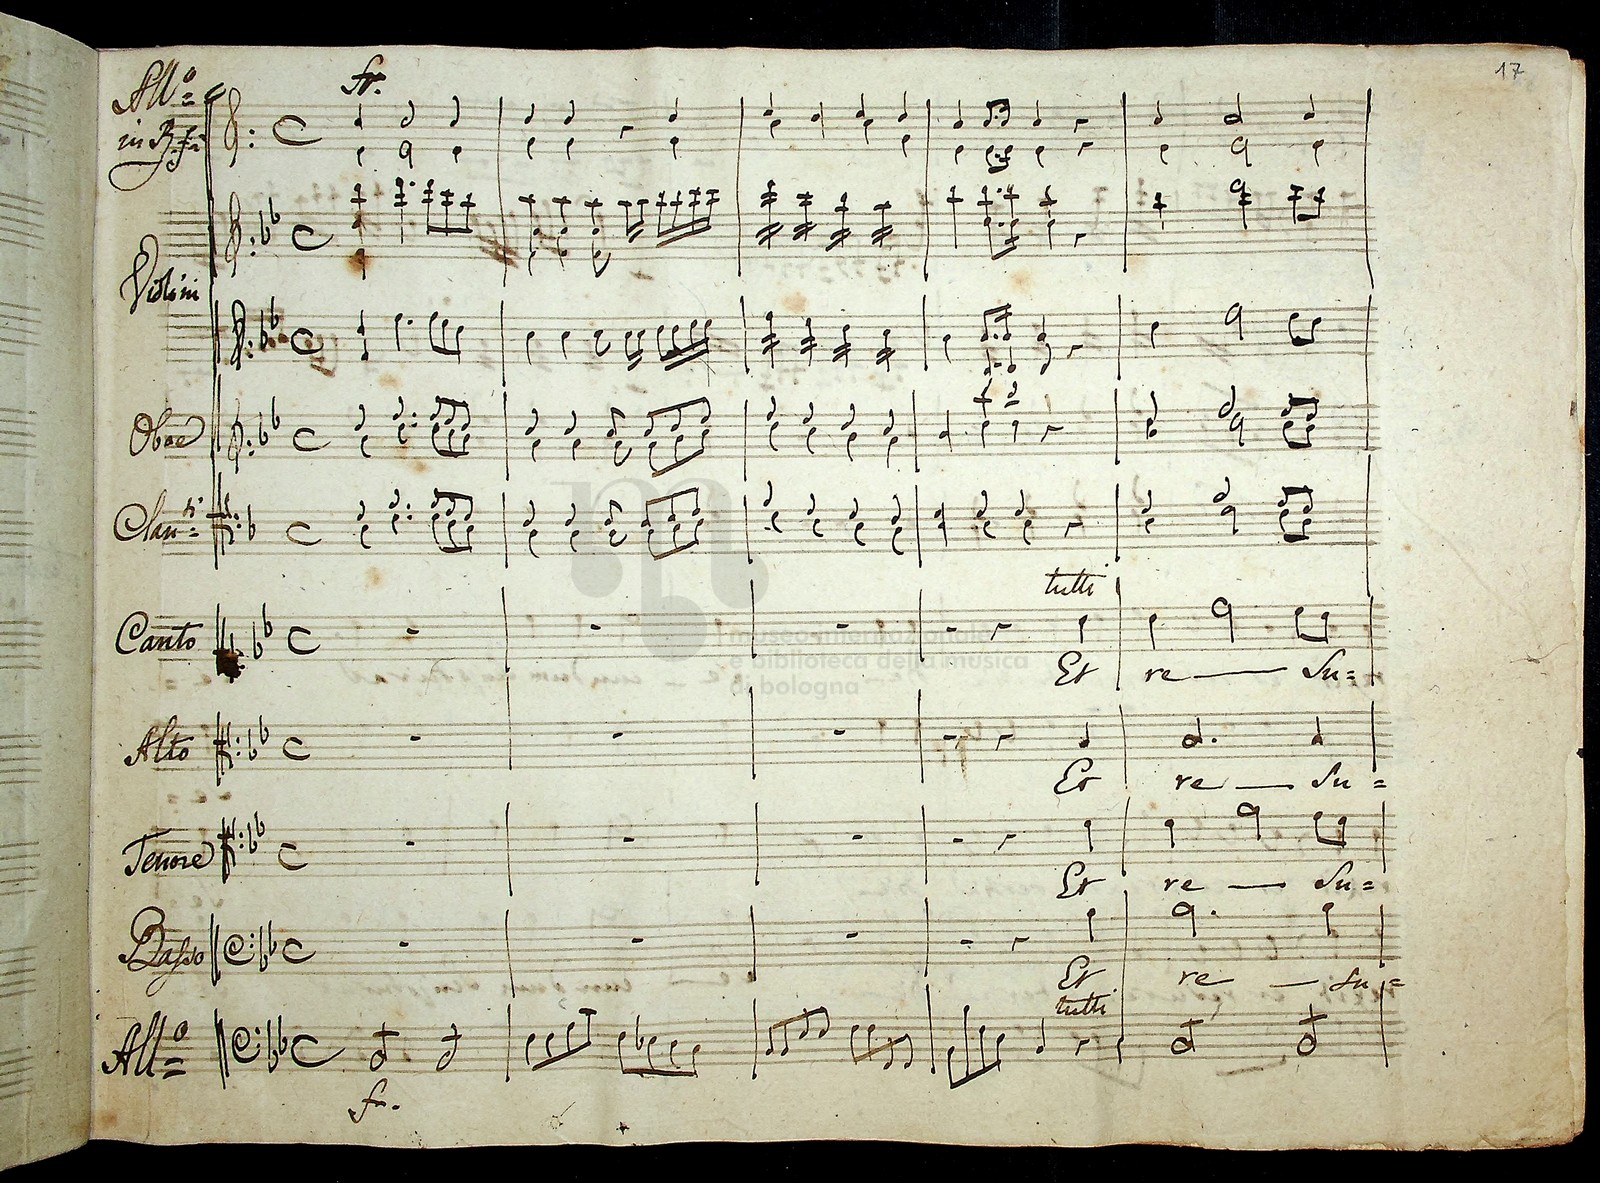 17
All.º
fr.
in B. fa
Violini
Oboe
Clar.ti
tutti
Canto
museo internazionale
e biblioteca della musica
di bologna
Et re — Su=
Alto
Et re — Su=
Tenore
Et re — Su=
Basso
Et re — Su=
tutti
All.º
fr.